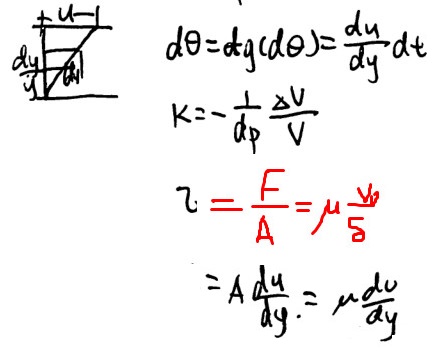 u
dy
y
du
dθ = dg(dθ) = du/dy dt
K = - 1/dp ΔV/V
τ = F/A = μ v₀/δ
= A du/dy = μ du/dy